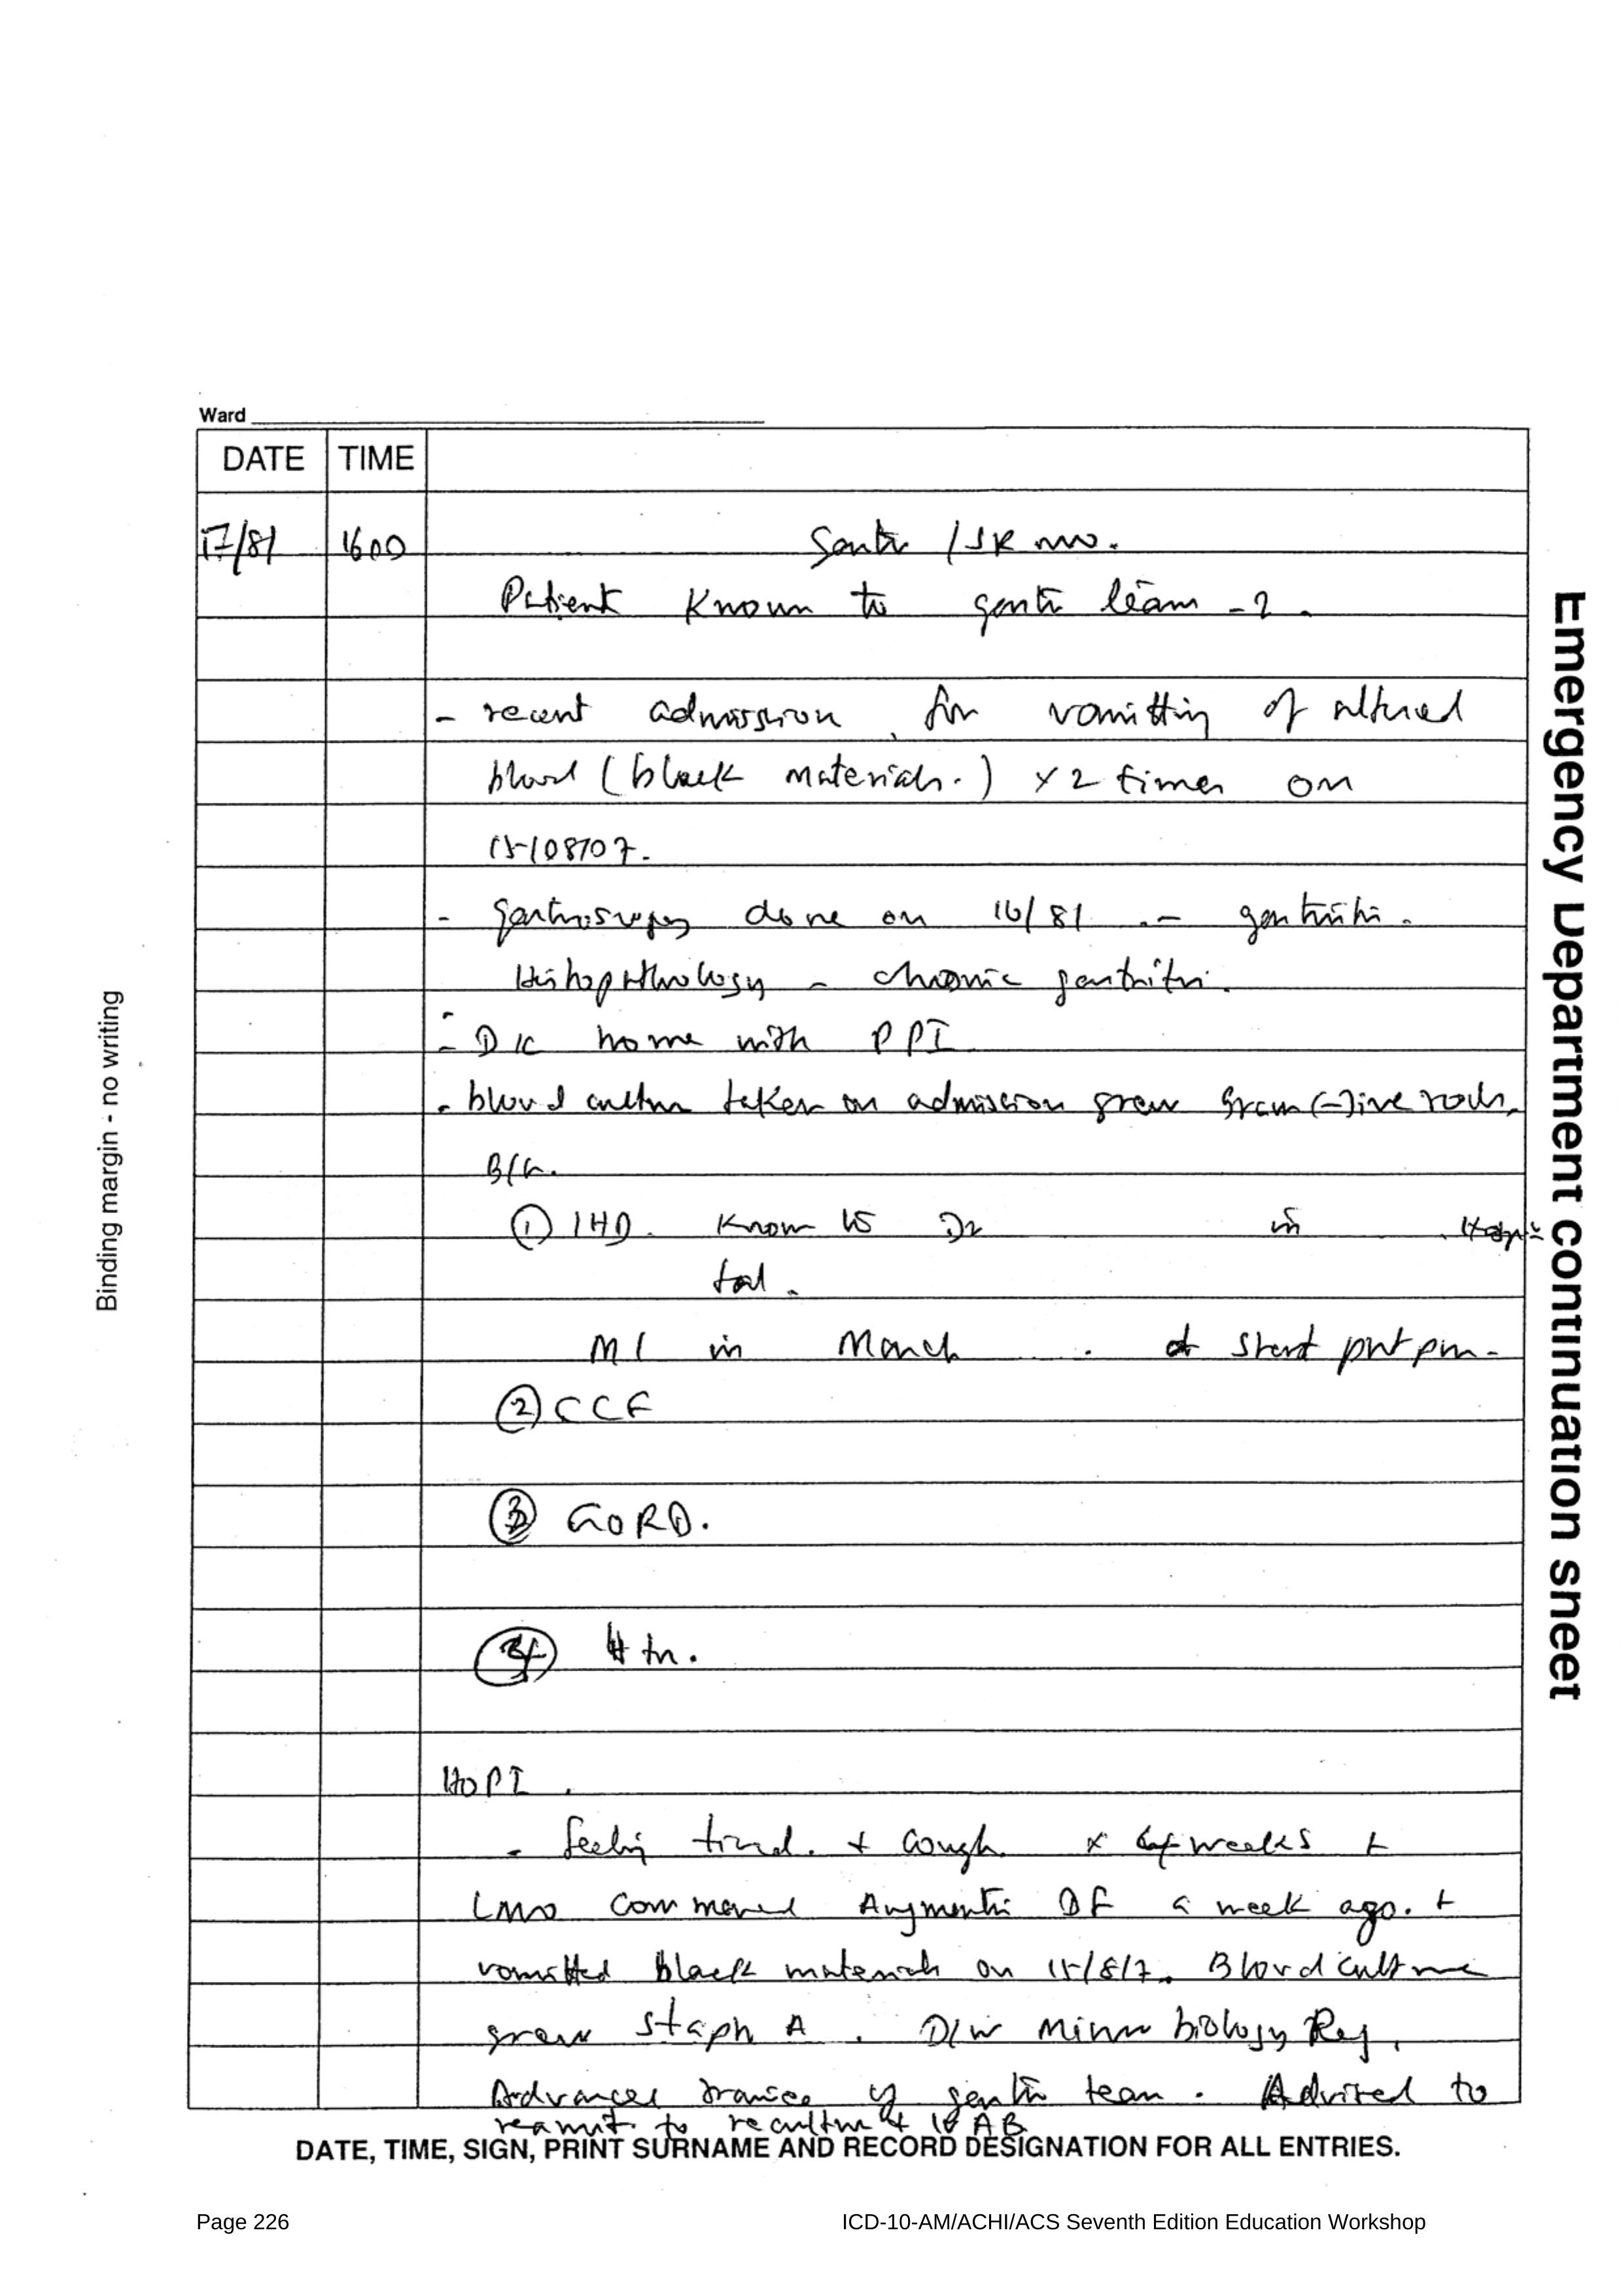 Ward
DATE TIME
17/8/ 1600 Gastro / SR mo.
Patient Known to gastro team - 2.
- recent admission for vomitting of altered
blood (black materials.) x 2 times on
15/08/07.
- gastroscopy done on 16/8/ - gastritis.
Histopathology - chronic gastritis.
- D/c home with PPI
- blood culture taken on admission grew Gram (-)ive rods.
B/G.
① IHD. Known to Dr in Hospi-
tal.
MI in March
② CCF
③ GORD.
④ Htn.
HOPI.
- feeling tired. + cough x 4 weeks +
LMO commenced Augmentin DF a week ago. +
vomitted black materials on 15/8/7. Blood culture
grew Staph A. D/W Microbiology Reg,
Advanced trainee of gastro team. Advised to
readmit to reculture & IV AB
DATE, TIME, SIGN, PRINT SURNAME AND RECORD DESIGNATION FOR ALL ENTRIES.
Binding margin - no writing
Emergency Department continuation sheet
Page 226 ICD-10-AM/ACHI/ACS Seventh Edition Education Workshop